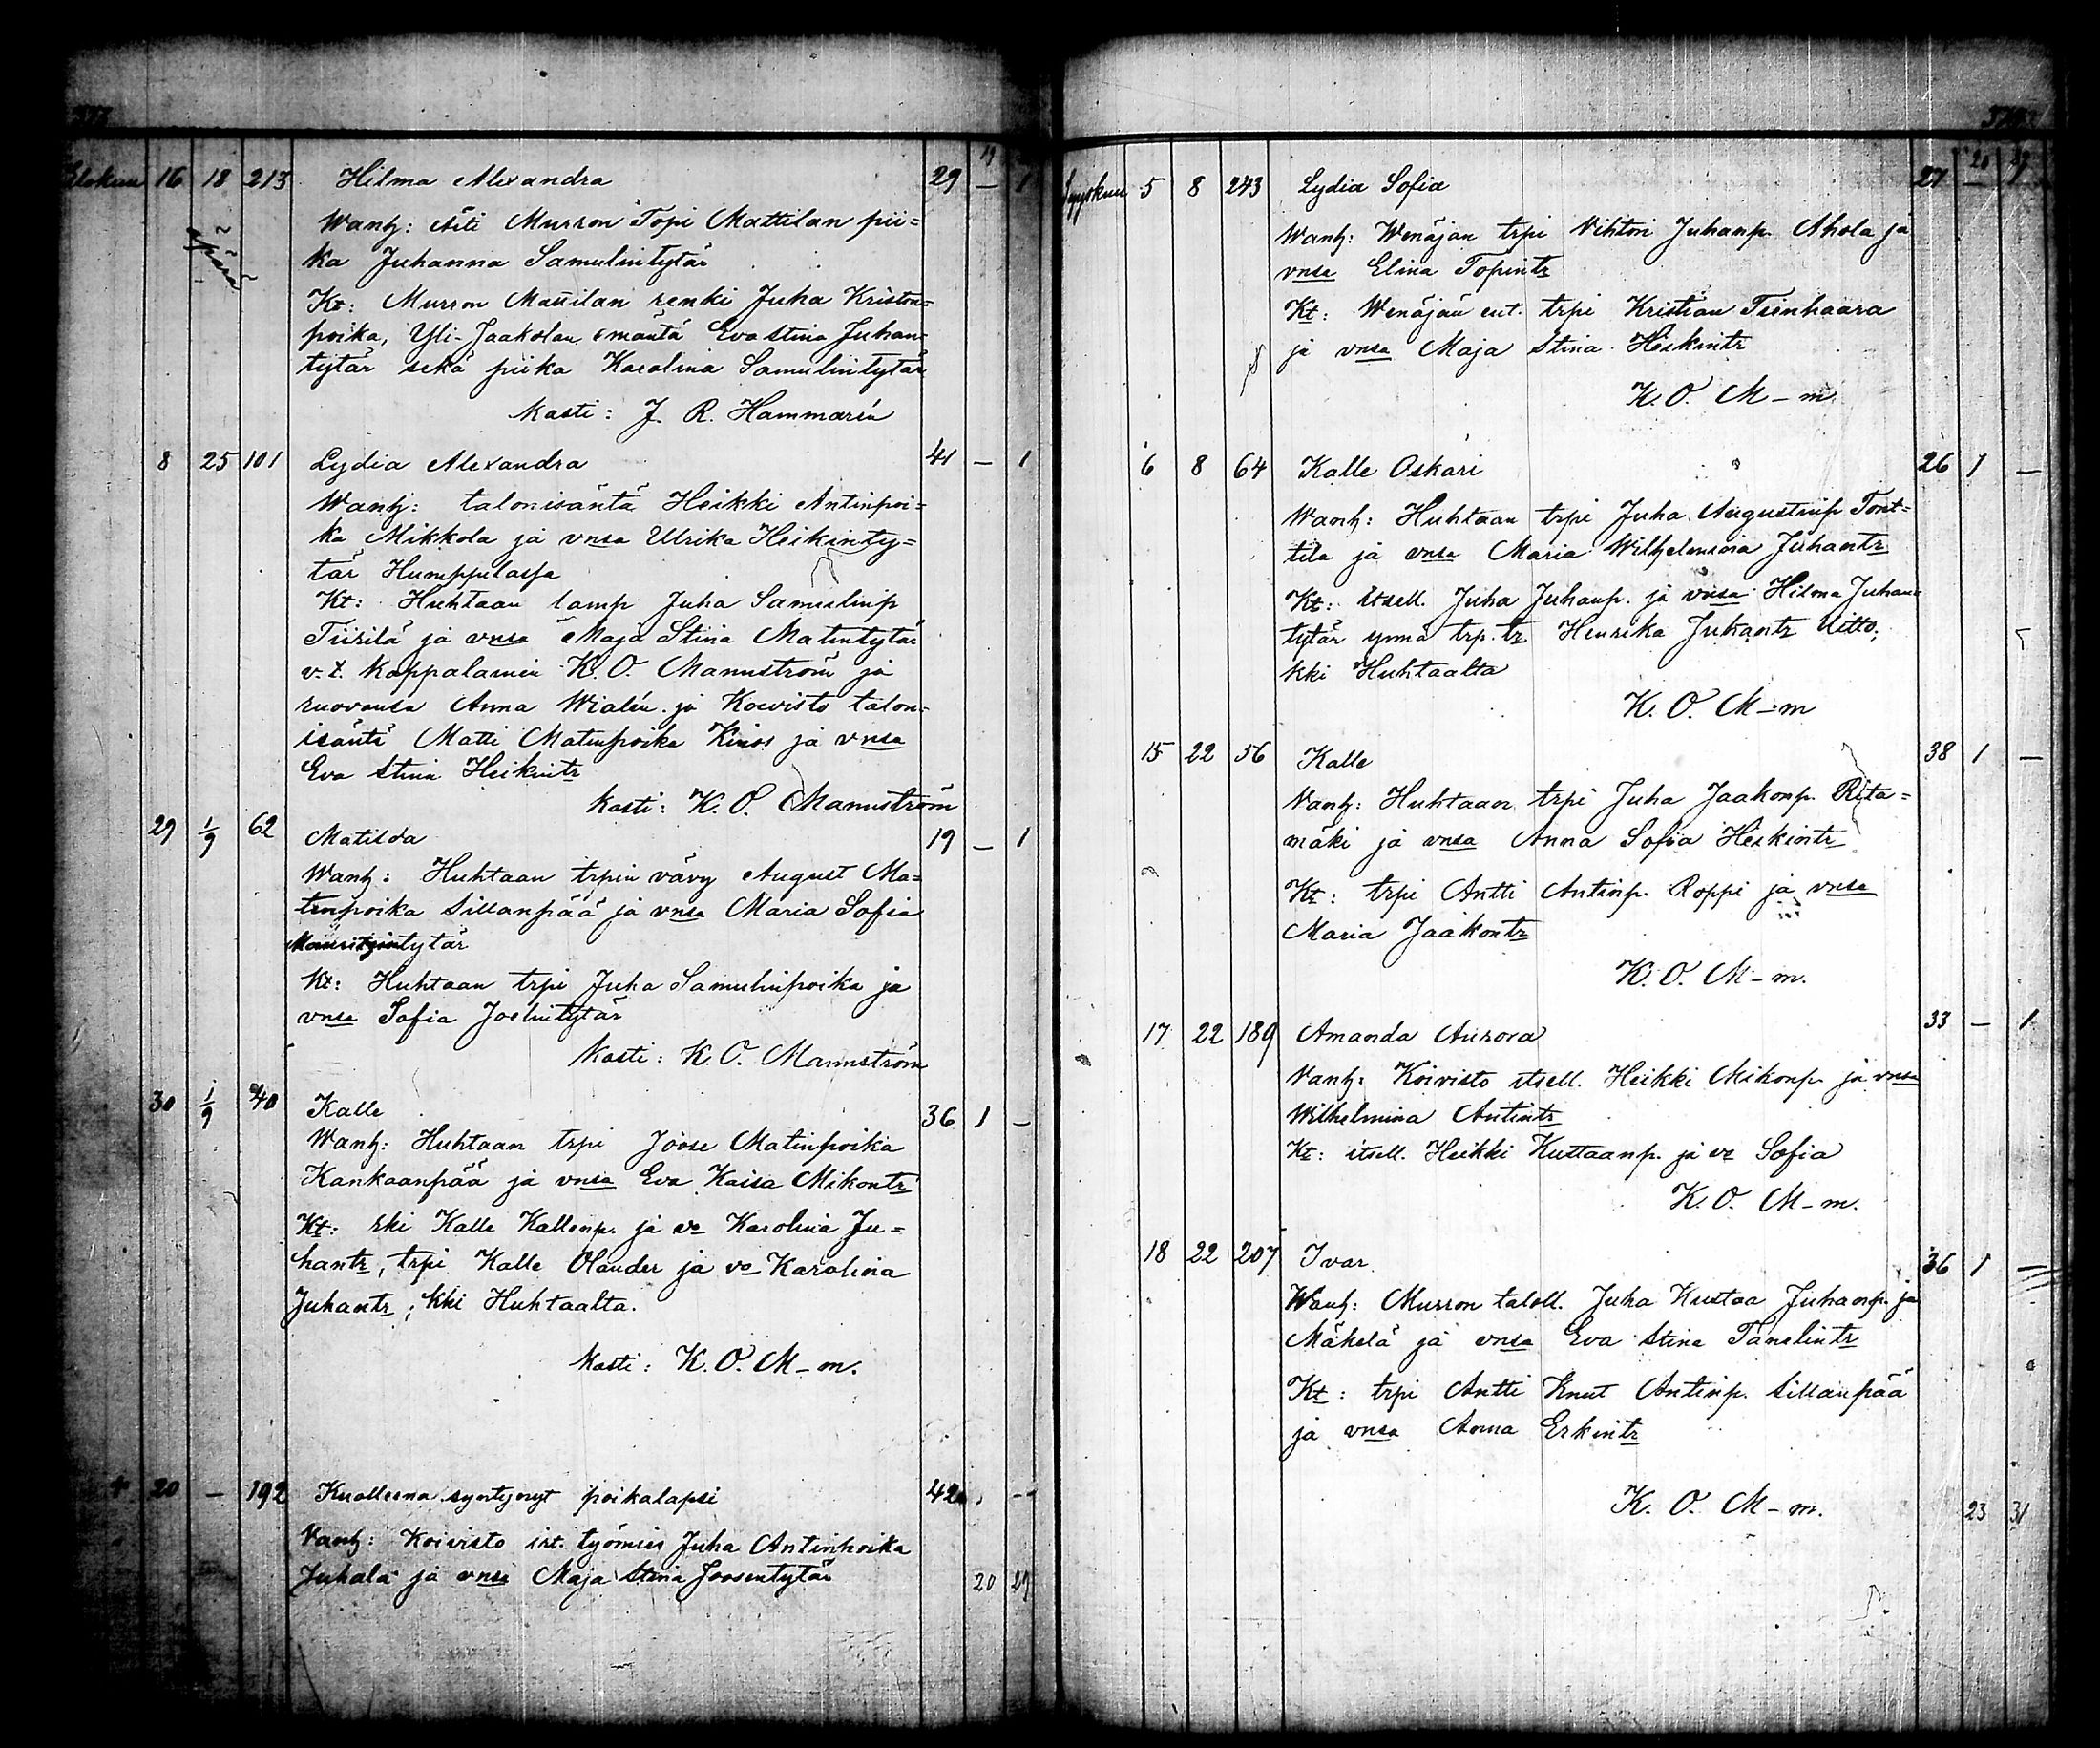 Elokuu 16 18 213 Hilma Alexandra 29 — 1
Wanh: Äiti Murron Topi Mattilan pii=
ka Juhanna Samulintytär
Kt: Murron Mattilan renki Juha Kriston=
poika, Yli-Jaakolan emäntä Eva Stina Juhan=
tytär sekä piika Karolina Samulintytär
Kasti: J. R. Hammarén
8 25 101 Lydia Alexandra 41 — 1
Wanh: talonisäntä Heikki Antinpoi=
ka Mikkola ja vnsa Ulrika Heikinty=
tär Humppilasta
Kt: Huhtaan lamp Juha Samulinp
Tiirilä ja vnsa Maja Stina Matintytär
v.t. Kappalainen K. O. Mannström ja
rouvansa Anna Wialén ja Koivisto talon=
isäntä Matti Matinpoika Kinos ja vnsa
Eva Stina Heikintr
Kasti: K. O. Mannström
29 1/9 62 Matilda 19 — 1
Wanh: Huhtaan trpin vävy August Ma=
tinpoika Sillanpää ja vnsa Maria Sofia
Mauritzintytär
Kt: Huhtaan trpi Juha Samulinpoika ja
vnsa Sofia Joelintytär
Kasti: K. O. Mannström
30 1/9 40 Kalle 36 1 —
Wanh: Huhtaan trpi Joose Matinpoika
Kankaanpää ja vnsa Eva Kaisa Mikontr
Kt: rki Kalle Kallenp. ja vo Karolina Ju=
hantr, trpi Kalle Olander ja vo Karolina
Juhantr; kki Huhtaalta.
Kasti: K. O. M—m.
+ 20 — 192 Kuolleena syntynyt poikalapsi 42
Vanh: Koivisto irt. työmies Juha Antinpoika
Juhala ja vnsa Maja Stina Joosentytär
20 29
Syyskuu 5 8 243 Lydia Sofia 27 20 — 29
Wanh: Wenäjän trpi Vihtori Juhanp. Ahola ja
vnsa Elina Topintr
Kt: Wenäjän ent. trpi Kristian Tienhaara
ja vnsa Maja Stina Heikintr
K. O. M—m
6 8 64 Kalle Oskari 26 1 —
Wanh: Huhtaan trpi Juha Augustinp Tont=
tila ja vnsa Maria Wilhelmiina Juhantr
Kt: itsell. Juha Juhanp. ja vnsa Hilma Juhan=
tytär ynnä trp. tr Henrika Juhantr Uitto;
kki Huhtaalta
K. O. M—m
15 22 56 Kalle 38 1 —
Vanh: Huhtaan trpi Juha Jaakonp. Rita=
mäki ja vnsa Anna Sofia Heikintr
Kt: trpi Antti Antinp. Roppi ja vnsa
Maria Jaakontr
K. O. M—m.
17 22 189 Amanda Aurora 33 — 1
Vanh: Koivisto itsell. Heikki Mikonp. ja vnsa
Wilhelmina Antintr
Kt: itsell. Heikki Kustaanp. ja vo Sofia
K. O. M—m.
18 22 207 Ivar 36 1 —
Wanh: Murron taloll. Juha Kustaa Juhanp. ja
Mäkelä ja vnsa Eva Stina Tanelintr
Kt: trpi Antti Knut Antinp. Sillanpää
ja vnsa Anna Erkintr
K. O. M—m.
23 31